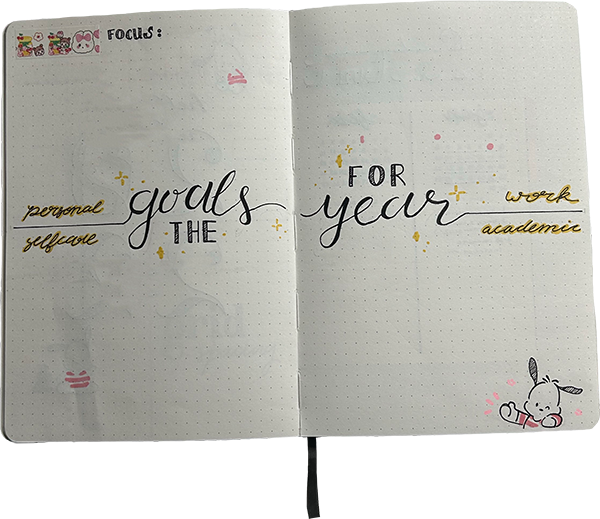 FOCUS:
personal
selfcare
goals
THE
FOR
year
work
academic